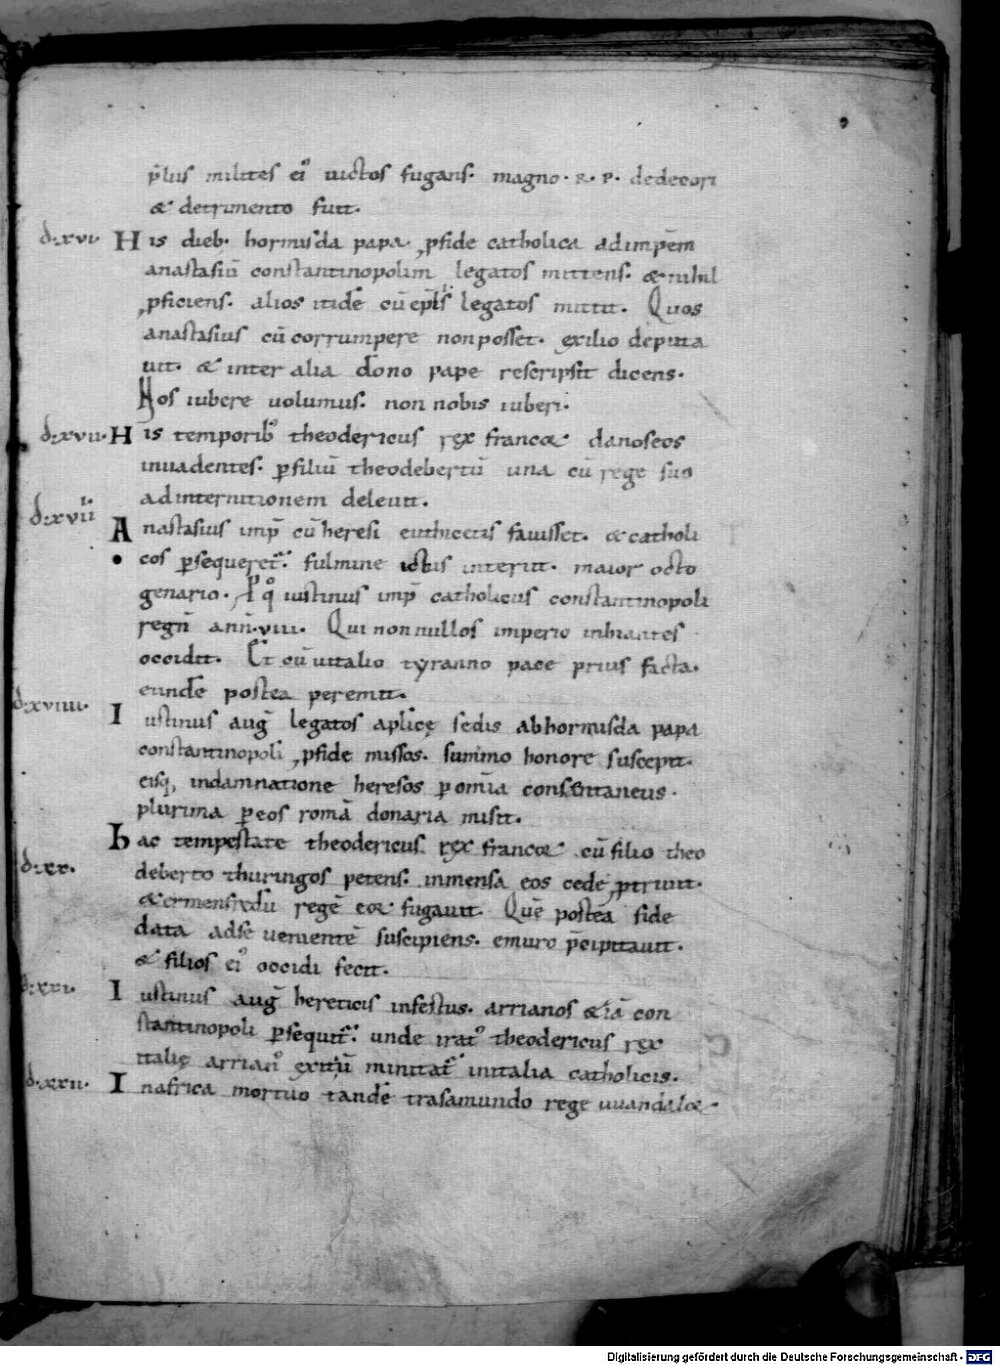 p̄lius milites ei᾿ uictos fugans. magno. R. P. dedecori
& detrimento fuit.
d.xvi. His dieb. hormisda papa, ꝓfide catholica adimp̄em
anastasiū constantinopolim legatos mittens. & nihil
ꝓficiens. alios itidē cū epl̄is legatos mittit. Quos
anastasius cū corrumpere non posset. exilio deputa
uit. & inter alia dōno pape rescripsit dicens.
Nos iubere uolumus. non nobis iuberi.
d.xvii. His temporib᾿ theodericus rex francoꝝ danos eos
inuadentes. ꝑ filiū theodebertū una cū rege suo
ad internitionem deleuit.
d.xviii Anastasius imp̄ cū heresi euthicetis fauisset. & catholi
cos ꝑsequeret᾿. fulmine ictus interiit. maior octo
genario. P᾿ q᾿ iustinus imp̄ catholicus constantinopoli
regn̄ ann̄.viii. Qui nonnullos imperio inhiantes
occidit. Et cū uitalio tyranno pace prius facta.
eundē postea peremit.
d.xviiii. Iustinus auḡ legatos aplicę sedis ab hormisda papa
constantinopoli ꝓfide missos. summo honore suscepit.
eisq, in damnatione hereseos ꝑ omīa consentaneus.
plurima ꝑ eos romā donaria misit.
Hac tempestate theodericus rex francoꝝ cū filio theo
d.xx. deberto thuringos petens. inmensa eos cede ꝓtriuit.
& ermenfredū regē eoꝝ fugauit. Quē postea fide
data ad se uenientē suscipiens. e muro p̄cipitauit.
& filios ei᾿ occidi fecit.
d.xxi. Iustinus auḡ hereticis infestus. arrianos etiā con
stantinopoli ꝑsequit᾿. unde irat᾿ theodericus rex
italię arrian᾿ exitiū minitat᾿ in italia catholicis.
d.xxii. In africa mortuo tandē trasamundo rege uuandaloꝝ.
Digitalisierung gefördert durch die Deutsche Forschungsgemeinschaft - DFG